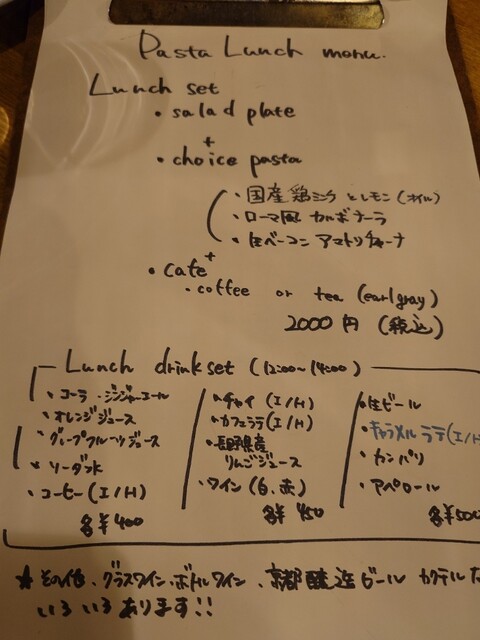 Pasta Lunch menu.
Lunch set
・salad plate
+
・choice pasta
・国産鶏ミンチとレモン(オイル)
・ローマ風 カルボナーラ
・生ベーコン アマトリチャーナ
+
・cafe
・coffee or tea (earlgray)
2000円 (税込)
Lunch drink set (12:00〜14:00)
・コーラ・ジンジャーエール
・オレンジジュース
・グレープフルーツジュース
・ソーダ
・コーヒー(I/H)
各¥400
・チャイ(I/H)
・カフェラテ(I/H)
・長野県産
りんごジュース
・ワイン(白、赤)
各¥450
・生ビール
・キャラメルラテ(I/H
・カンパリ
・アペロール
各¥500
★その他、グラスワイン、ボトルワイン、京都醸造ビール カクテルな
いろいろあります!!